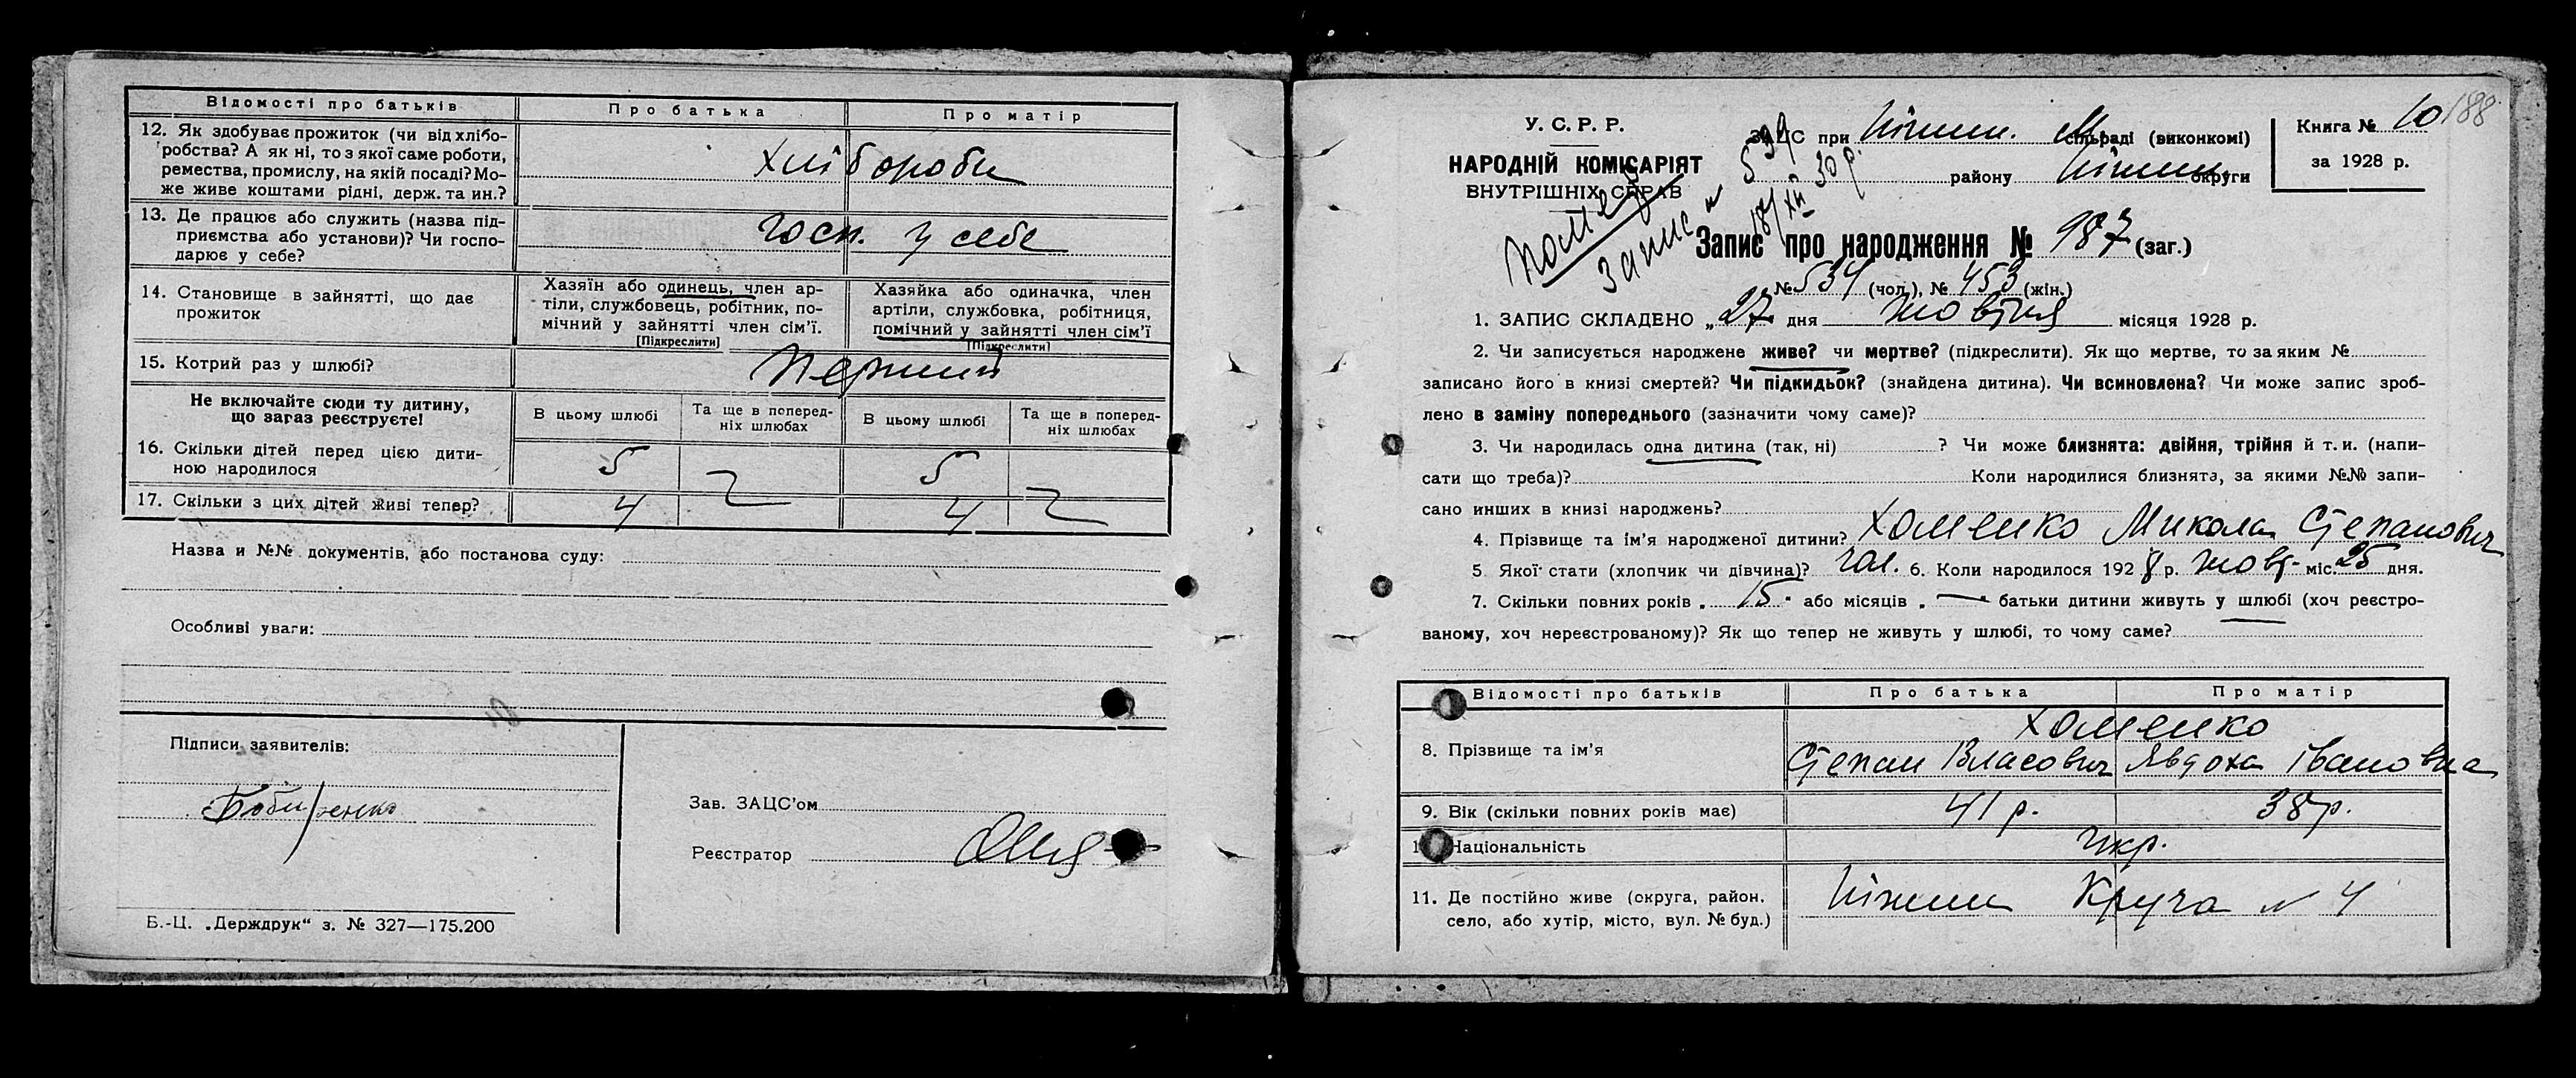 Відомості про батьків Про батька Про матір
12. Як здобуває прожиток (чи від хлібо-
робства? А як ні, то з якої саме роботи,
ремества, промислу, на якій посаді? Мо-
же живе коштами рідні, держ. та ин.?
хлібороби
13. Де працює або служить (назва під-
приємства або установи)? Чи госпо-
дарює у себе?
госп. у себе
14. Становище в зайнятті, що дає
прожиток
Хазяїн або одинець, член ар-
тіли, службовець, робітник, по-
мічний у зайнятті член сім'ї.
[Підкреслити]
Хазяйка або одиначка, член
артіли, службовка, робітниця,
помічний у зайнятті член сім'ї
[Підкреслити]
15. Котрий раз у шлюбі? перший
Не включайте сюди ту дитину,
що загаз реєструєте!
В цьому шлюбі
Та ще в поперед-
ніх шлюбах
В цьому шлюбі
Та ще в поперед-
ніх шлюбах
16. Скільки дітей перед цією дити-
ною народилося
5 5
17. Скільки з цих дітей живі тепер? 4 4
Назва и №№ документів, або постанова суду:
Особливі уваги:
Підписи заявителів:
Зав. ЗАЦС'ом
Реєстратор
Б.-Ц. „Держдрук“ з. № 327—175.200
У. С. Р. Р.
НАРОДНІЙ КОМІСАРІЯТ
ВНУТРІШНІХ СПРАВ
ЗАЦС при Ніжин. М. сільраді (виконкомі)
району Ніжин. округи
Книга № 10
за 1928 р.
188
Запис № 539
18/XII 30 р.
Запис про народження № 987 (заг.)
№ 534 (чол.), № 453 (жін.)
1. ЗАПИС СКЛАДЕНО „27 дня жовтня місяця 1928 р.
2. Чи записується народжене живе? чи мертве? (підкреслити). Як що мертве, то за яким №
записано його в книзі смертей? Чи підкидьок? (знайдена дитина). Чи всиновлена? Чи може запис зроб-
лено в заміну попереднього (зазначити чому саме)?
3. Чи народилась одна дитина (так, ні) ? Чи може близнята: двійня, трійня й т. и. (напи-
сати що треба)? Коли народилися близнята, за якими №№ запи-
сано инших в книзі народжень?
4. Прізвище та ім'я народженої дитини? Хоменко Микола Степанович
5. Якої стати (хлопчик чи дівчина)? чол. 6. Коли народилося 1928 р. жовт. міс. 25 дня.
7. Скільки повних років „ 15 “ або місяців „ — “ батьки дитини живуть у шлюбі (хоч реєстро-
ваному, хоч нереєстрованому)? Як що тепер не живуть у шлюбі, то чому саме?
Відомості про батьків Про батька Про матір
Хоменко
8. Прізвище та ім'я Степан Власович Явдоха Івановна
9. Вік (скільки повних років має) 41 р. 38 р.
Національність укр.
11. Де постійно живе (округа, район,
село, або хутір, місто, вул. № буд.)
Ніжин Круча № 4